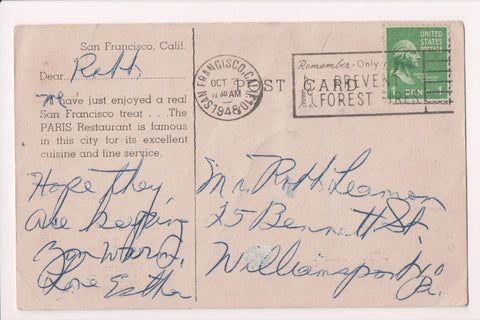 San Francisco, Calif.
Dear Robt
We have just enjoyed a real
San Francisco treat . . . The
PARIS Restaurant is famous
in this city for its excellent
cuisine and fine service.
Hope they
are keeping
you warm.
Love Esther
SAN FRANCISCO, CALIF.
OCT
11 30 AM
1948
Remember - Only
PREVENT
FOREST
UNITED
STATES
POSTAGE
1
POST CARD
Mr. Robt. Leamon
25 Bennett St.
Williamsport
Pa.